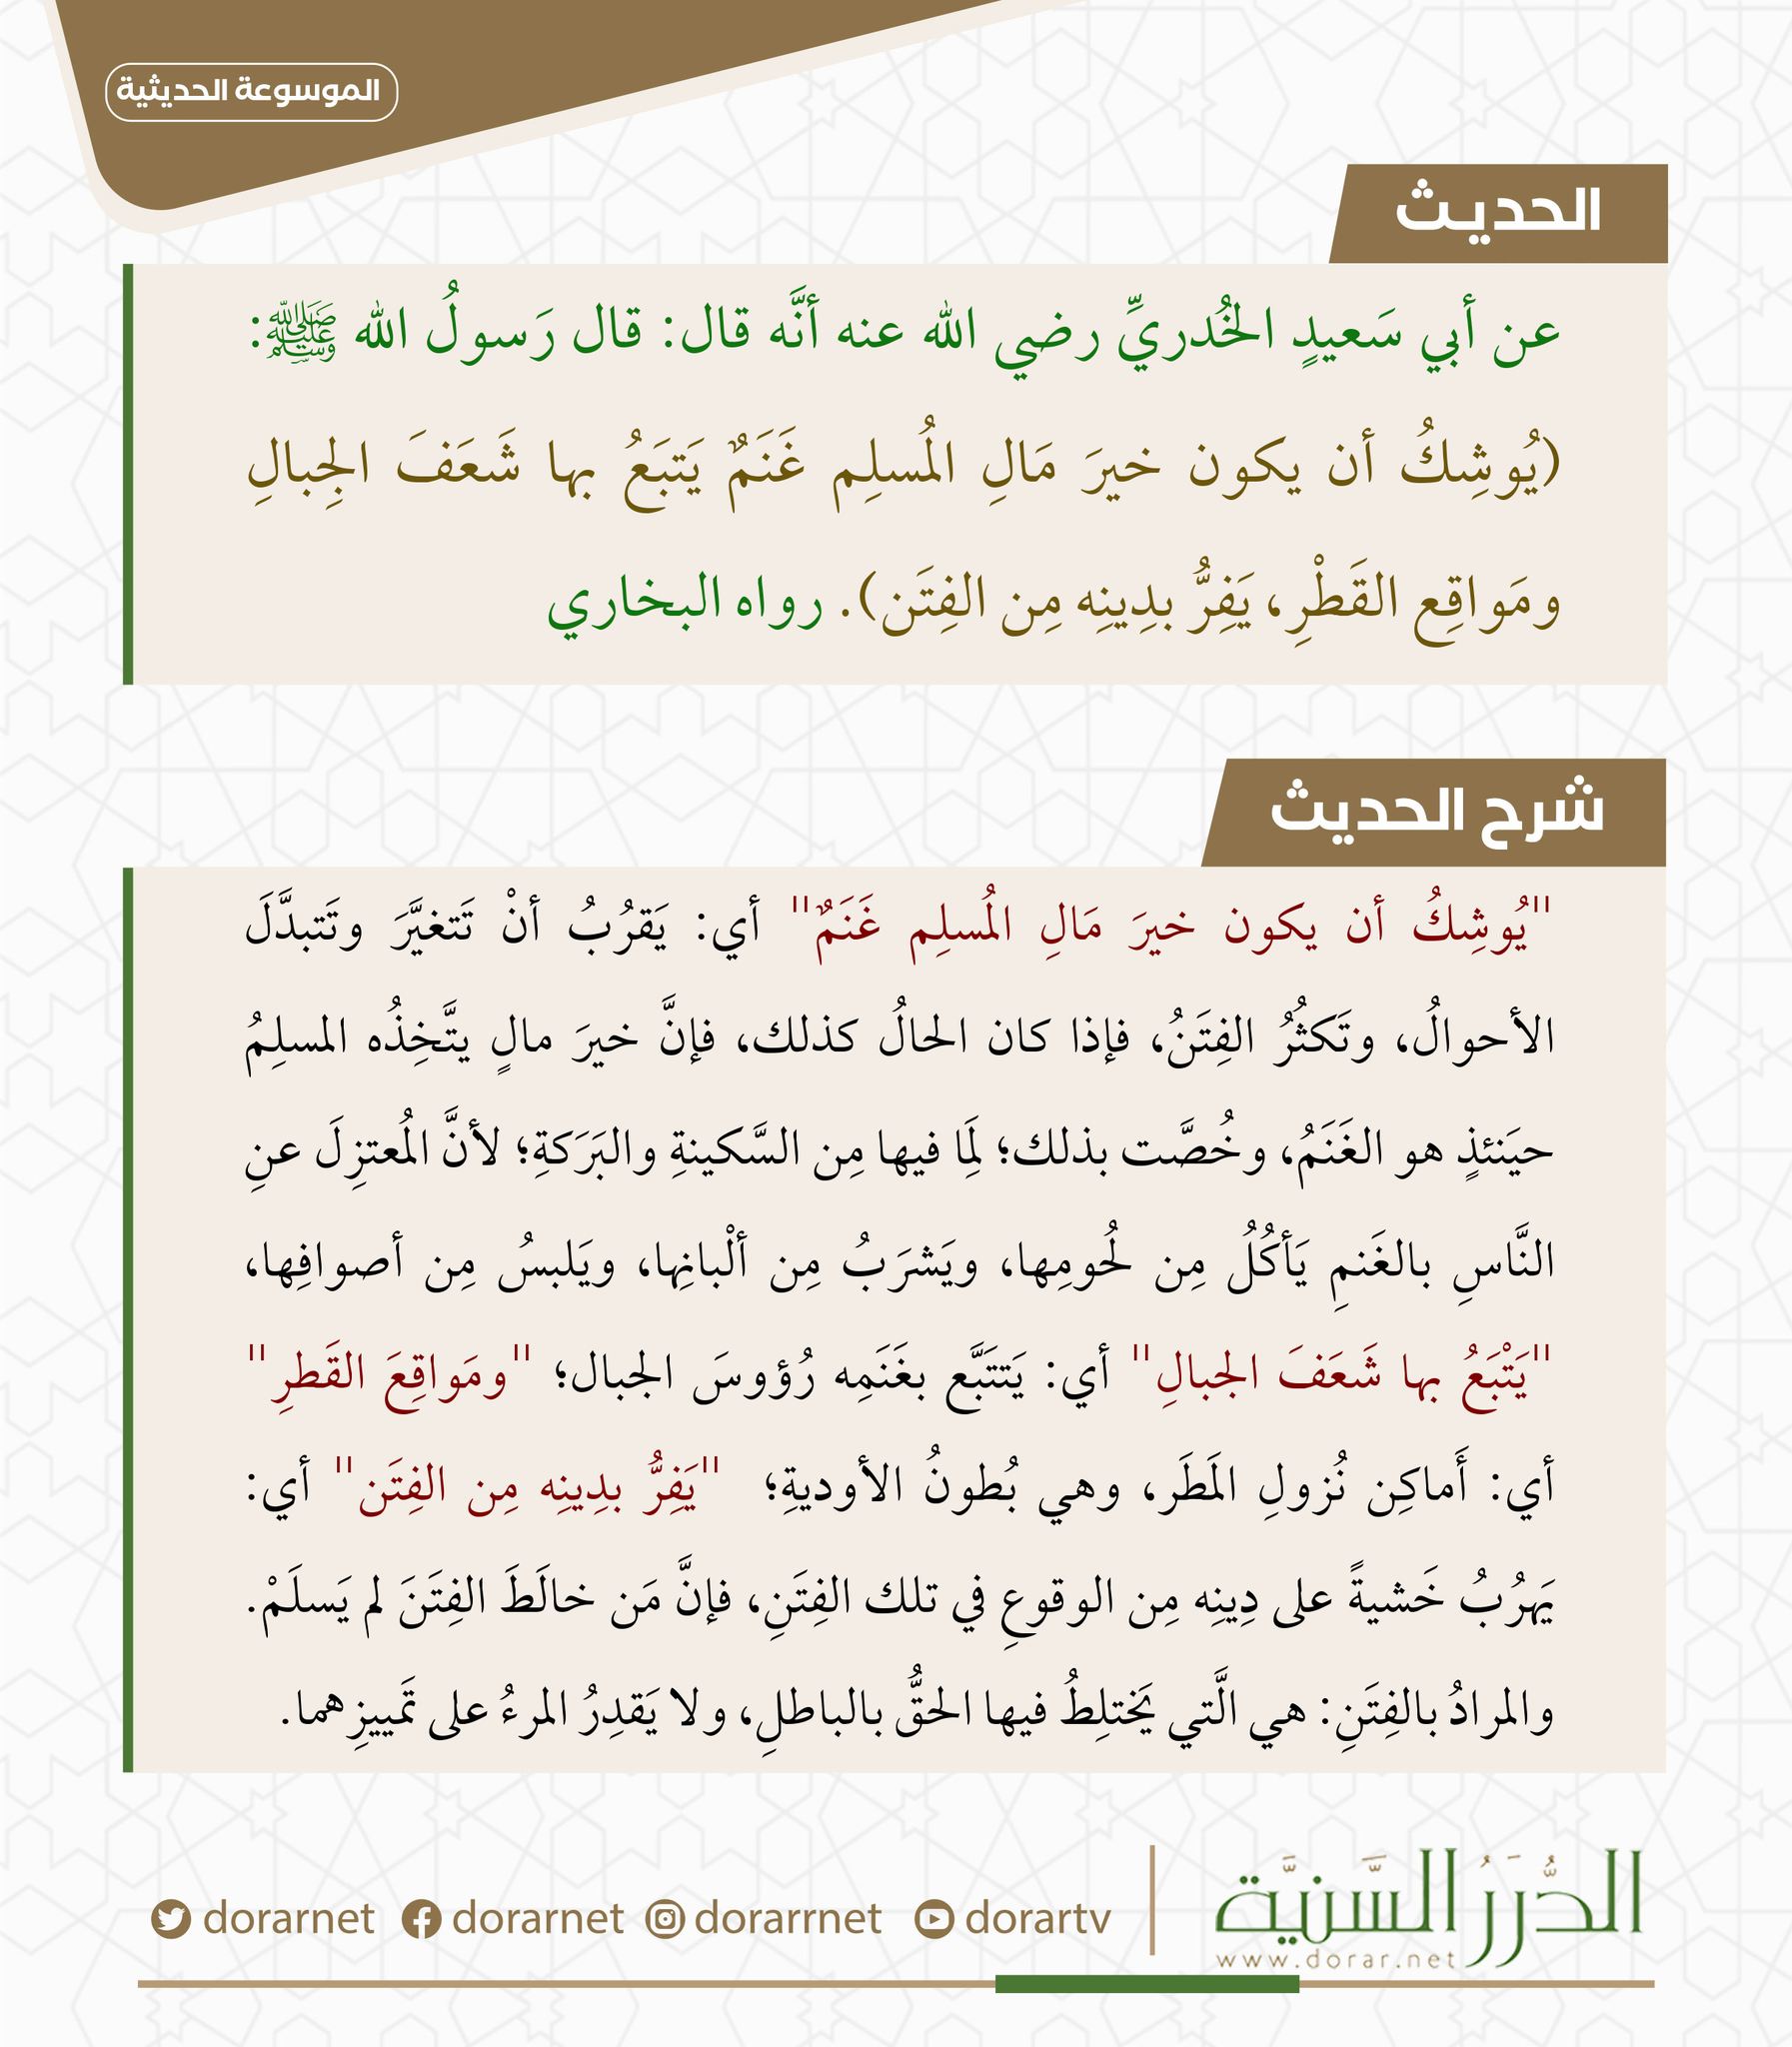 الموسوعة الحديثية
الحديث
عن أبي سَعيدٍ الخُدريِّ رضي الله عنه أنَّه قال: قال رَسولُ الله ﷺ:
(يُوشِكُ أن يكون خيرَ مَالِ المُسلِم غَنَمٌ يَتبَعُ بها شَعَفَ الجِبالِ
ومَواقِع القَطْرِ، يَفِرُّ بدِينِه مِن الفِتَن). رواه البخاري
شرح الحديث
"يُوشِكُ أن يكون خيرَ مَالِ المُسلِم غَنَمٌ" أي: يَقرُبُ أنْ تَتغيَّرَ وتَتبدَّلَ
الأحوالُ، وتَكثُرُ الفِتَنُ، فإذا كان الحالُ كذلك، فإنَّ خيرَ مالٍ يتَّخِذُه المسلِمُ
حيَنئذٍ هو الغَنَمُ، وخُصَّت بذلك؛ لِمَا فيها مِن السَّكينةِ والبَرَكةِ؛ لأنَّ المُعتزِلَ عنِ
النَّاسِ بالغَنمِ يَأكُلُ مِن لُحومِها، ويَشرَبُ مِن ألْبانِها، ويَلبسُ مِن أصوافِها،
"يَتْبَعُ بها شَعَفَ الجبالِ" أي: يَتتَبَّع بغَنَمِه رُؤوسَ الجبال؛ "ومَواقِعَ القَطرِ"
أي: أَماكِن نُزولِ المَطَر، وهي بُطونُ الأوديةِ؛ "يَفِرُّ بدِينِه مِن الفِتَن" أي:
يَهرُبُ خَشيةً على دِينِه مِن الوقوعِ في تلك الفِتَنِ، فإنَّ مَن خالَطَ الفِتَنَ لم يَسلَمْ.
والمرادُ بالفِتَنِ: هي الَّتي يَختلِطُ فيها الحقُّ بالباطلِ، ولا يَقدِرُ المرءُ على تَمييزِهما.
الدُّرَرُ السَّنيَّة
www.dorar.net
dorarnet dorarnet dorarrnet dorartv